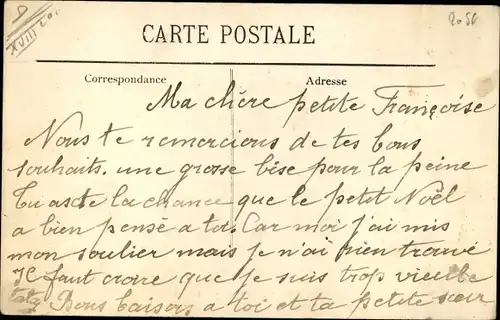 XVIII
CARTE POSTALE
Correspondance
Adresse
Ma chère petite Françoise
Nous te remercions de tes bons
souhaits. une grosse bise pour la peine
Tu as de la chance que le petit Noël
a bien pensé a toi. Car moi j'ai mis
mon soulier mais je n'ai rien trouvé
Il faut croire que je suis trop vieille
Bons baisers a toi et ta petite sœur